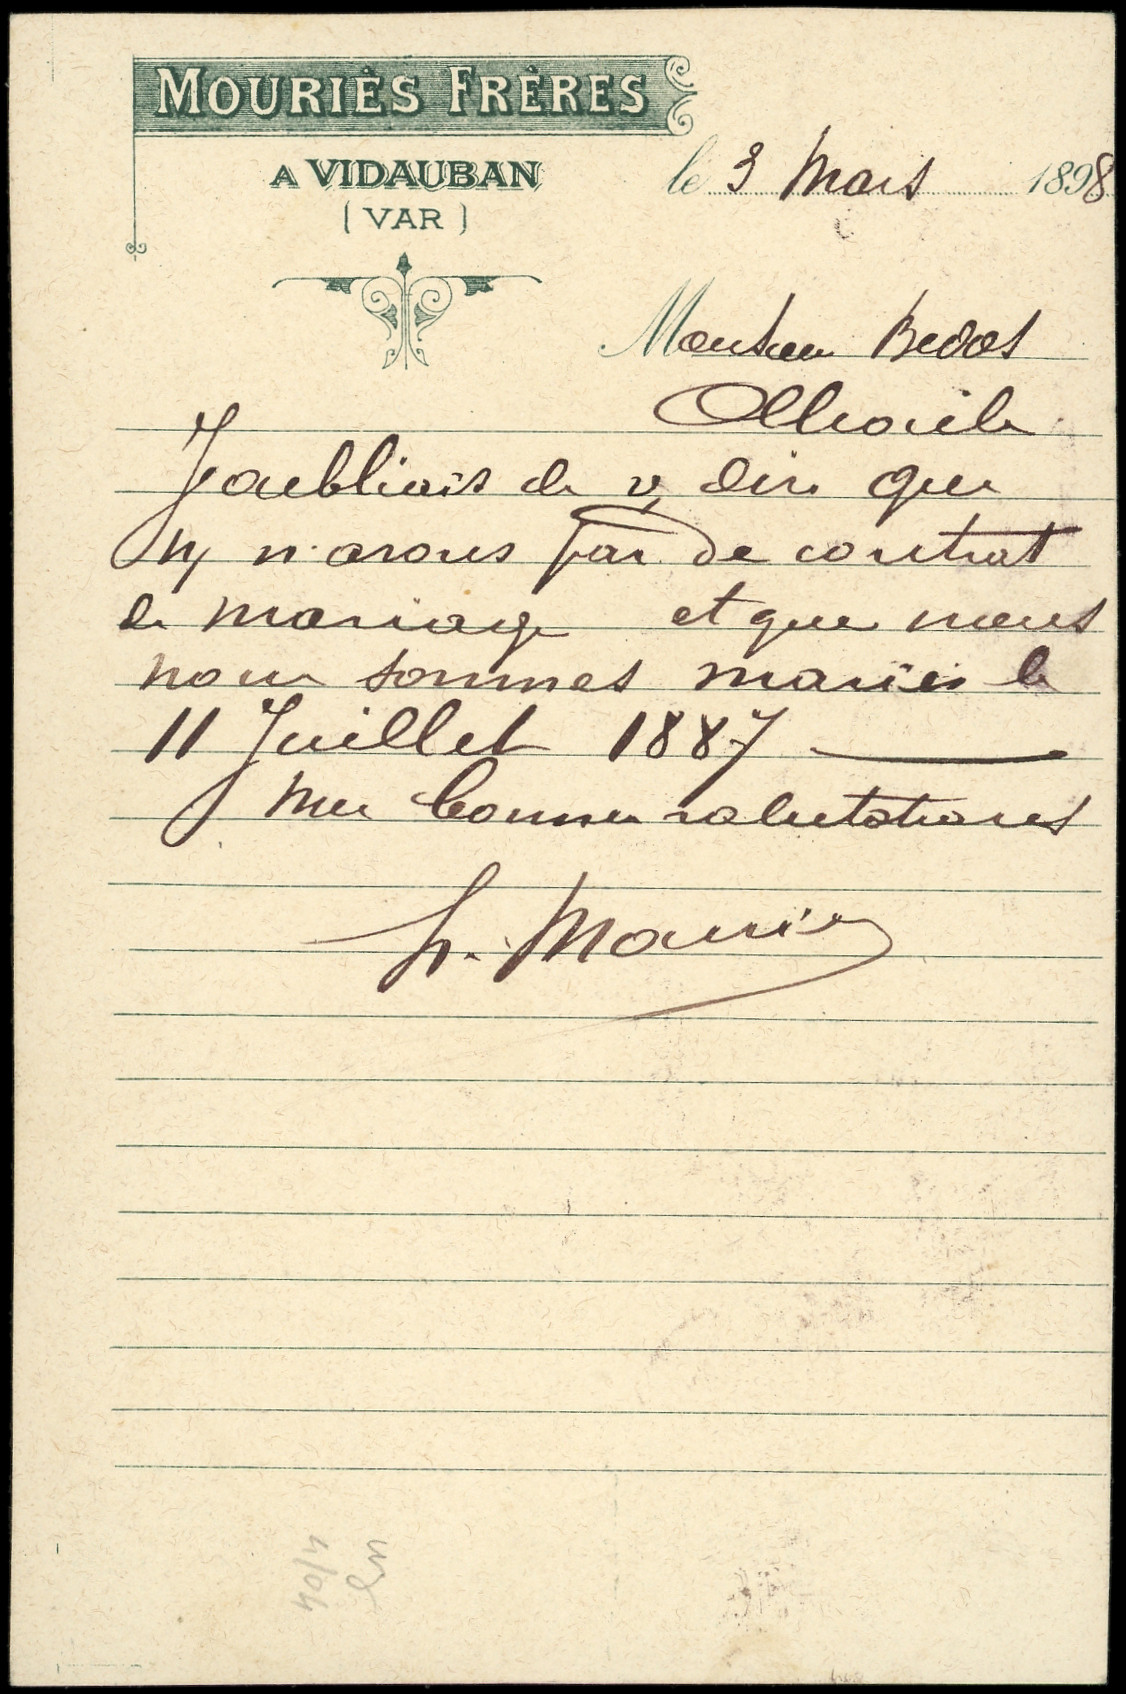 MOURIÈS FRÈRES
A VIDAUBAN
(VAR)
le 3 Mars 1898
Monsieur Bedos
J'oubliais de v. dire que
ns n'avons pas de contrat
de mariage et que nous
nous sommes mariés le
11 Juillet 1887
Mes bonnes salutations
h. Mouriès
4/04